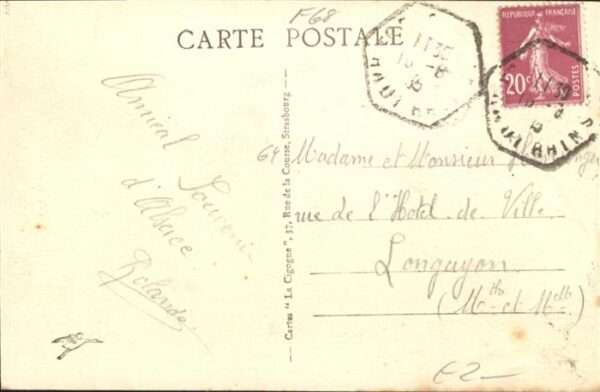 F68
CARTE POSTALE
REPUBLIQUE FRANÇAISE
20c
POSTES
HAUT-RHIN
Amical Souvenir
d'Alsace
Rolande
Cartes "La Cigogne", 37, Rue de la Course, Strasbourg
64 Madame et Monsieur
rue de l'Hotel de Ville
Longuyon
(Mthe et Mlle)
E2-